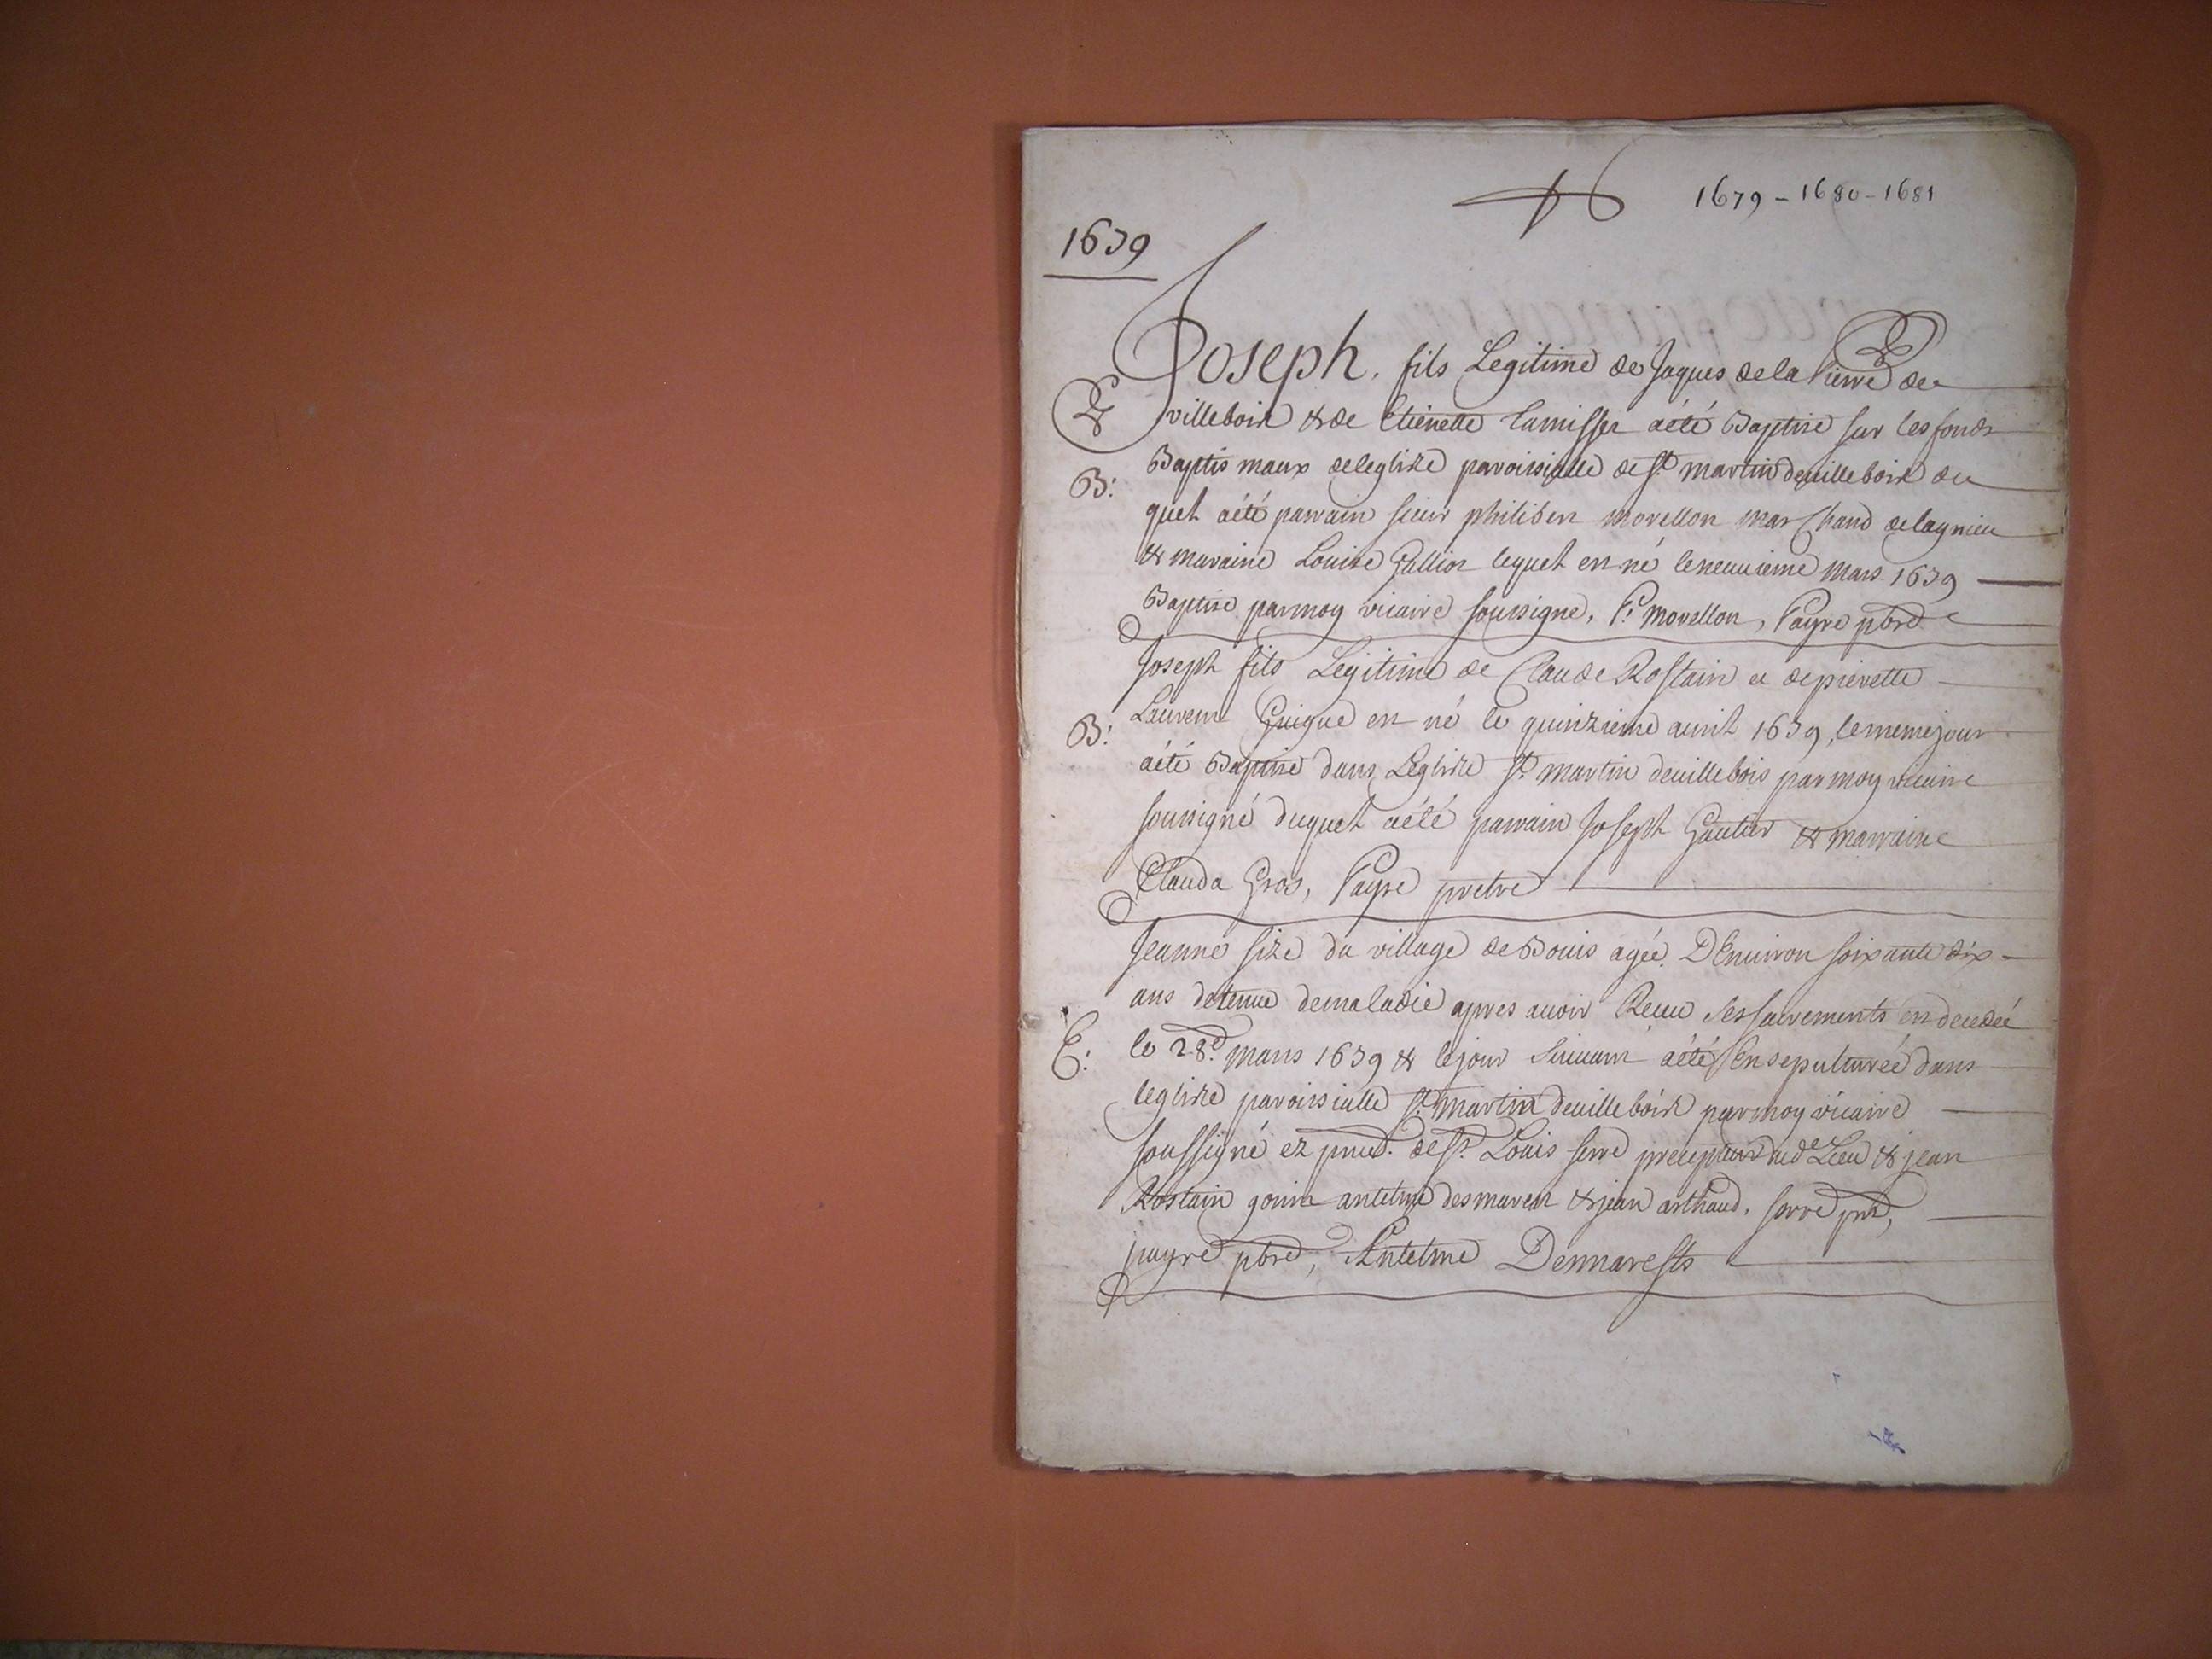 1679 - 1680 - 1681
1679
Joseph, fils Legitime de Jaques de la Pierre de
villebois & de Etienette Lamisser aété Baptise sur les fonds
B: Baptis maux deleglise paroissialle de St. martin deuillebois du
quel aété parrain sieur philibert morellon marchand delagnieu
& maraine Louise Gallior lequel est né leneuuieme mars 1679
Baptise parmoy vicaire soussigne, P: morellon, Payre pbre
Joseph fils Legitime de Claude Rostain et depierette
B: Laurent Guigue est né le quinzieme auril 1679, lememejour
aété Baptise dans Leglise St. martin deuillebois parmoy vicaire
soussigné duquel aété parrain Joseph Gautier & marraine
Clauda Gros, Payre pretre
Jeanne size du village de Bouis agée D'Enuiron soixante dix
ans detenue demaladie apres auoir Receu ses sacrements est decedée
E: le 28e. mars 1679 & lejour suiuant aété Ensepulturée dans
leglise paroissialle St. martin deuillebois parmoy vicaire
soussigné ez de Sr. Louis serre precepteur dud. Lieu & jean
Rostain gonin antelme desmarest & jean arthaud. serre pnt,
payre pbre, Antelme Demarests